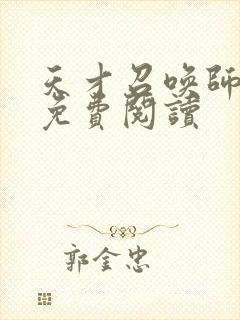 天才召喚師
免費閱讀
郭金忠